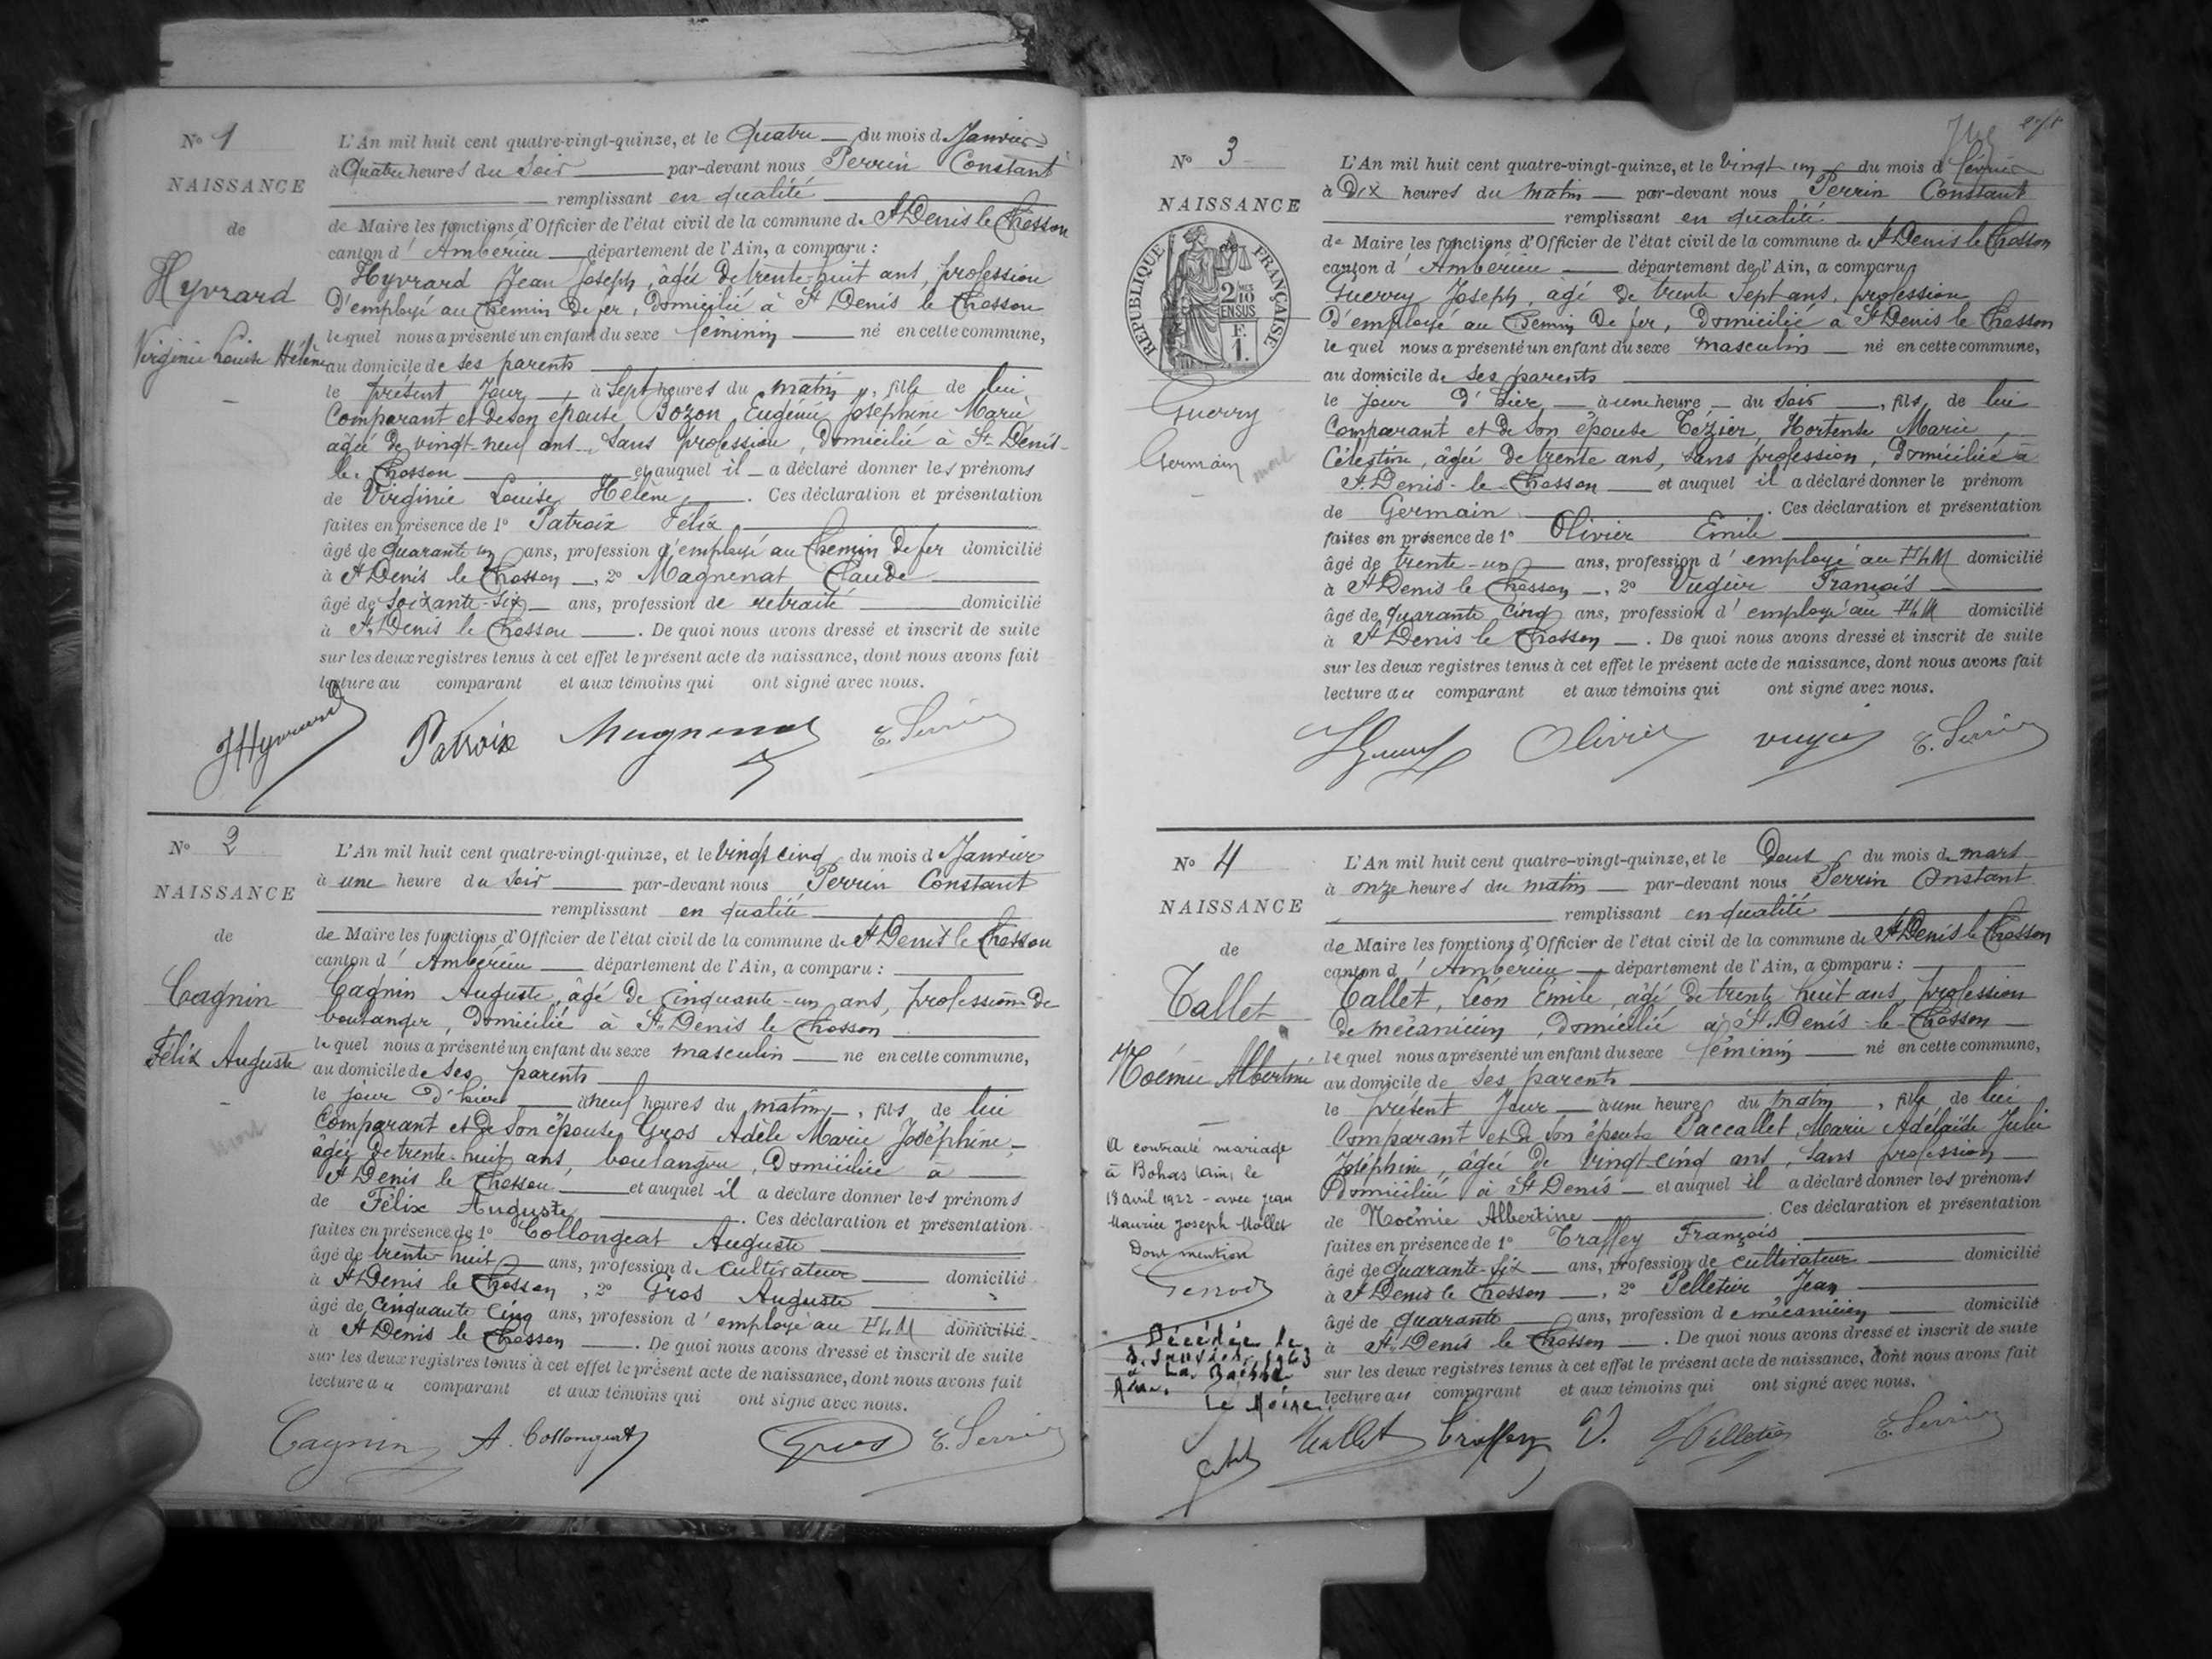 No 1
NAISSANCE
de
Hyvrard
Virginie Louise Hélène
L'An mil huit cent quatre-vingt-quinze, et le Quatre du mois de Janvier
à Quatre heures du Soir par-devant nous Perrin Constant
remplissant en qualité
de Maire les fonctions d'Officier de l'état civil de la commune de St Denis le Chosson
canton d'Ambérieu département de l'Ain, a comparu :
Hyvrard Jean Joseph, âgée de trente-huit ans, profession
d'employé au Chemin de fer, domicilié à St Denis le Chosson
lequel nous a présenté un enfant du sexe féminin né en cette commune,
au domicile de ses parents
le présent Jour, à Sept heures du matin, fille de lui
Comparant et de son épouse Bozon Eugénie Joséphine Marie
âgée de vingt-neuf ans, Sans profession, domicilié à St Denis-
le-Chosson et auquel il a déclaré donner les prénoms
de Virginie Louise Hélène. Ces déclaration et présentation
faites en présence de 1° Patroix Félix
âgé de quarante un ans, profession d'employé au Chemin de fer domicilié
à St Denis le Chosson, 2° Magnenat Claude
âgé de soixante-six ans, profession de retraité domicilié
à St Denis le Chosson. De quoi nous avons dressé et inscrit de suite
sur les deux registres tenus à cet effet le présent acte de naissance, dont nous avons fait
lecture au comparant et aux témoins qui ont signé avec nous.
JHyvrard Patroix Magnenat C. Perrin
No 2
NAISSANCE
de
Cagnin
Félix Auguste
mort
L'An mil huit cent quatre-vingt-quinze, et le Vingt cinq du mois d Janvier
à une heure du Soir par-devant nous Perrin Constant
remplissant en qualité
de Maire les fonctions d'Officier de l'état civil de la commune de St Denis le Chosson
canton d'Ambérieu département de l'Ain, a comparu :
Cagnin Auguste, âgé de Cinquante-un ans, profession de
boulanger, domicilié à St Denis le Chosson
lequel nous a présenté un enfant du sexe masculin né en cette commune,
au domicile de ses parents
le jour d'hier à neuf heures du matin, fils de lui
Comparant et de Son épouse Gros Adèle Marie Joséphine,
âgée de trente-huit ans, boulangère, domiciliée à
St Denis le Chosson et auquel il a déclaré donner les prénoms
de Félix Auguste. Ces déclaration et présentation
faites en présence de 1° Collongeat Auguste
âgé de trente-huit ans, profession de Cultivateur domicilié
à St Denis le Chosson, 2° Gros Auguste
âgé de Cinquante Cinq ans, profession d'employé au PLM domicilié
à St Denis le Chosson. De quoi nous avons dressé et inscrit de suite
sur les deux registres tenus à cet effet le présent acte de naissance, dont nous avons fait
lecture au comparant et aux témoins qui ont signé avec nous.
Cagnin A. Collongeat Gros C. Perrin
No 3
NAISSANCE
de
RÉPUBLIQUE FRANÇAISE
2 MES
10
EN SUS
F.
1.
Guerry
Germain
mort
L'An mil huit cent quatre-vingt-quinze, et le Vingt un du mois d février
à Dix heures du matin par-devant nous Perrin Constant
remplissant en qualité
de Maire les fonctions d'Officier de l'état civil de la commune de St Denis le Chosson
canton d'Ambérieu département de l'Ain, a comparu
Guerry Joseph, âgé de trente Sept ans, profession
d'employé au Chemin de fer, domicilié à St Denis le Chosson
lequel nous a présenté un enfant du sexe masculin né en cette commune,
au domicile de ses parents
le Jour d'hier à une heure du Soir, fils de lui
Comparant et de Son épouse Tézier, Hortense, Marie,
Célestine, âgée de trente ans, Sans profession, domiciliée à
St Denis-le-Chosson et auquel il a déclaré donner le prénom
de Germain. Ces déclaration et présentation
faites en présence de 1° Olivier Emile
âgé de trente-un ans, profession d'employé au PLM domicilié
à St Denis le Chosson, 2° Vugier François
âgé de quarante Cinq ans, profession d'employé au PLM domicilié
à St Denis le Chosson. De quoi nous avons dressé et inscrit de suite
sur les deux registres tenus à cet effet le présent acte de naissance, dont nous avons fait
lecture au comparant et aux témoins qui ont signé avec nous.
Olivier C. Perrin
No 4
NAISSANCE
de
Tallet
Noémie Albertine
a contracté mariage
à Bohas (Ain) le
18 avril 1922 - avec Jean
Maurice Joseph Mollet
Dont mention
Décédée le
Janvier 1963
Le Maire.
L'An mil huit cent quatre-vingt-quinze, et le Deux du mois de mars
à onze heures du matin par-devant nous Perrin Constant
remplissant en qualité
de Maire les fonctions d'Officier de l'état civil de la commune de St Denis le Chosson
canton d'Ambérieu département de l'Ain, a comparu :
Tallet, Léon Emile, âgé de trente huit ans, profession
de mécanicien, domicilié à St Denis-le-Chosson
lequel nous a présenté un enfant du sexe féminin né en cette commune,
au domicile de ses parents
le présent Jour à une heure du matin, fille de lui
Comparant et de Son épouse Vaccallet, Marie Adélaïde Julie
Joséphine, âgée de vingt-cinq ans, Sans profession
domiciliée à St Denis et auquel il a déclaré donner les prénoms
de Noémie Albertine Ces déclaration et présentation
faites en présence de 1° Traffey François
âgé de Quarante-six ans, profession de cultivateur domicilié
à St Denis le Chosson, 2° Pelletier Jean
âgé de quarante ans, profession de mécanicien domicilié
à St Denis le Chosson. De quoi nous avons dressé et inscrit de suite
sur les deux registres tenus à cet effet le présent acte de naissance, dont nous avons fait
lecture au comparant et aux témoins qui ont signé avec nous.
Tallet Traffey Pelletier C. Perrin